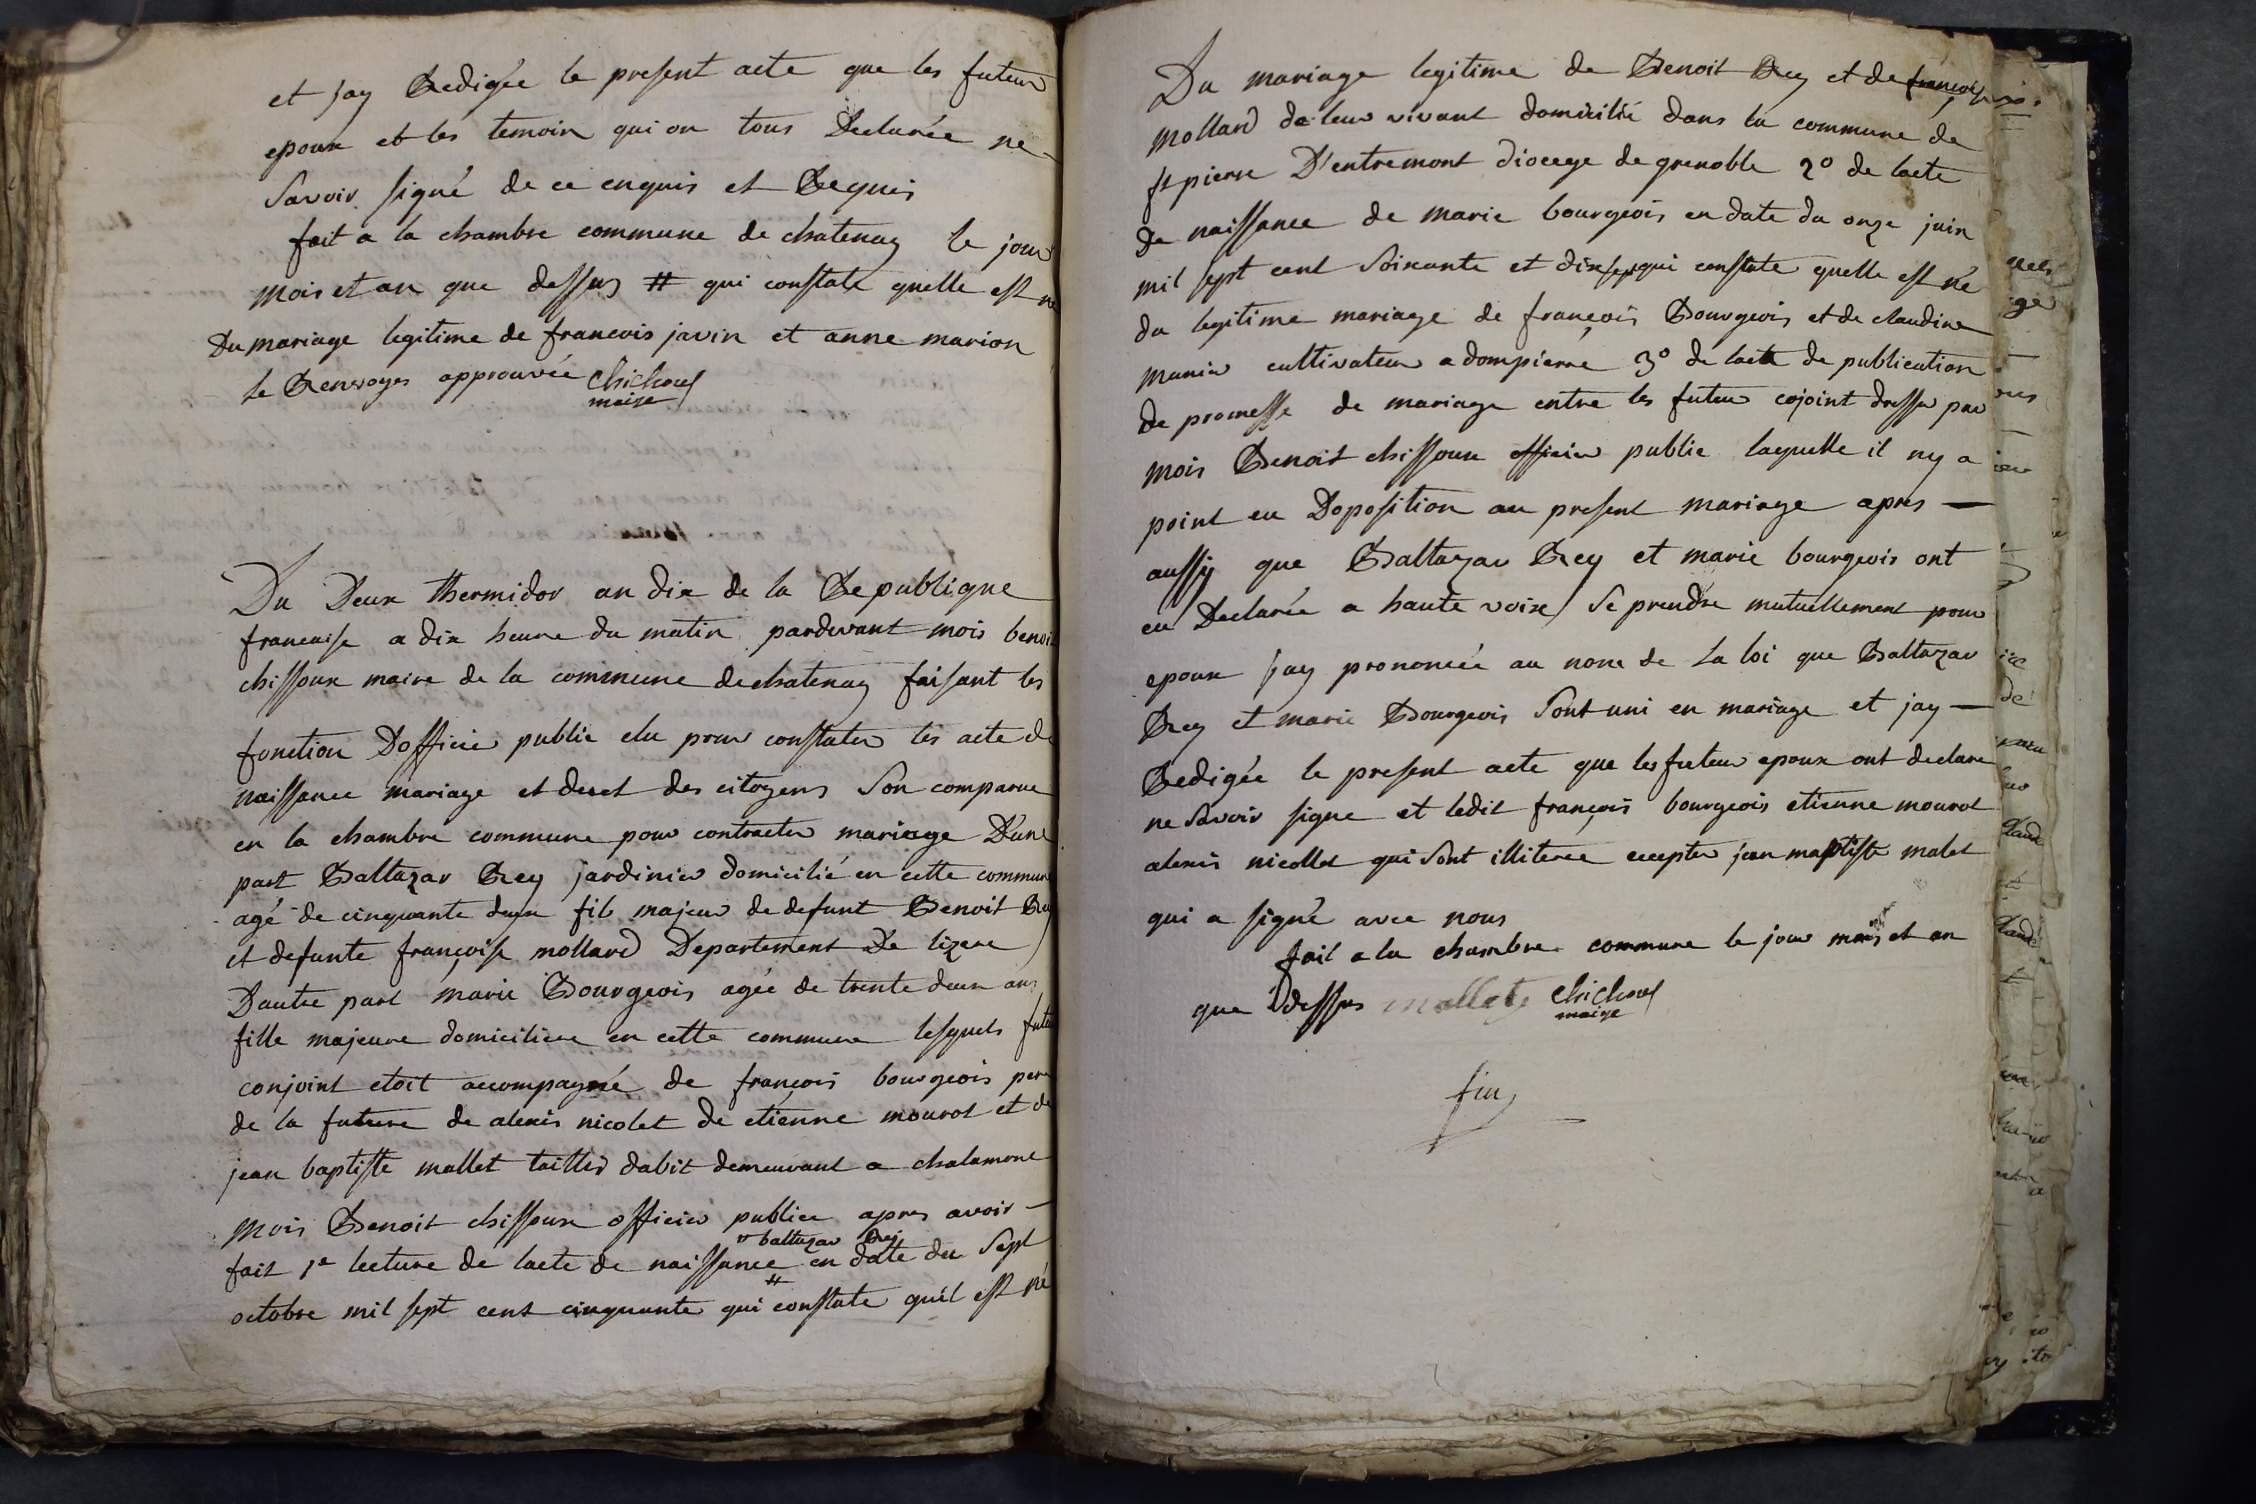 et jay Redigée le present acte que les futeur
epoux et les temoin qui on tous Declarée ne
Savoir signé de ce enquis et Requis
fait a la chambre commune de chatenay le jour
mois et an que dessus # qui constate quelle est né
Du mariage legitime de francois javin et anne marion
le Renvoyes approuvée chichoux
maire
Du Deux thermidor an dix de la Republique
francaise a dix heure du matin pardevant mois benoit
chissoux maire de la commune de chatenay faisant les
fonction Dofficié public elu pour constater les acte de
naissance mariage et decet des citoyens Son comparue
en la chambre commune pour contracter mariage D'une
part Baltazar Rey jardinier domicilié en cette commune
agé de cinquante deux fils majeur de defunt Benoit Rey
et defunte françoise mollard Departement De lizere
Dautre part marie Bourgeois agée de trente deux ans
fille majeure domiciliere en cette commune lesquels futeur
conjoint etoit accompagné de françois bourgeois pere
de la future de alexis nicolet de etienne mourot et de
jean baptiste mallet tailler dabit demeurant a chalamone
mois Benoit chissoux officier publice apres avoir
# baltazar Rey
fait 1e lecture de lacte de naissance # en date du Sept
octobre mil sept cent cinquante qui constate quil est né
Du mariage legitime de Benoit Rey et de françoise
mollard de leur vivant domicilié dans la commune de
st pierre D'entremont diocege de grenoble 2o de lacte
de naissance de marie bourgeois en date du onze juin
mil sept cent Soixante et dix sept qui constate quelle est né
du legitime mariage de françois Bourgeois et de claudine
munier cultivateur a dompierre 3o de lacte de publication
de promesse de mariage entre les futeur cojoint dresse par
mois Benoit chissoux officier public laquelle il ny a
point eu Doposition au present mariage apres —
aussy que Baltazar Rey et marie bourgeois ont
eu Declarée a haute voix Se prendre mutuellement pour
epoux jay prononcée au nom de la loi que Baltazar
Rey et marie Bourgeois Sont uni en mariage et jay —
Redigée le present acte que les futeur epoux ont declare
ne Savoir signe et ledit françois bourgeois etienne mourot
alexis nicollet qui Sont illiterée excepter jean maptiste malet
qui a signé avec nous
fait a la chambre commune le jour mois et an
que Ddessus mallet chichoux
maire
fin